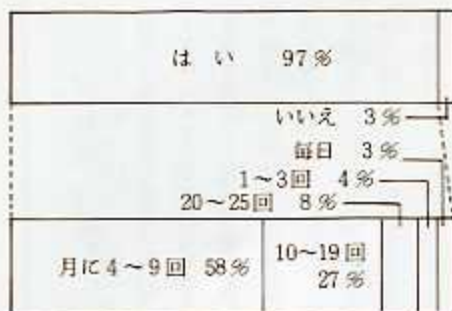 はい 97%
いいえ 3%
毎日 3%
1～3回 4%
20～25回 8%
月に4～9回 58%
10～19回
27%